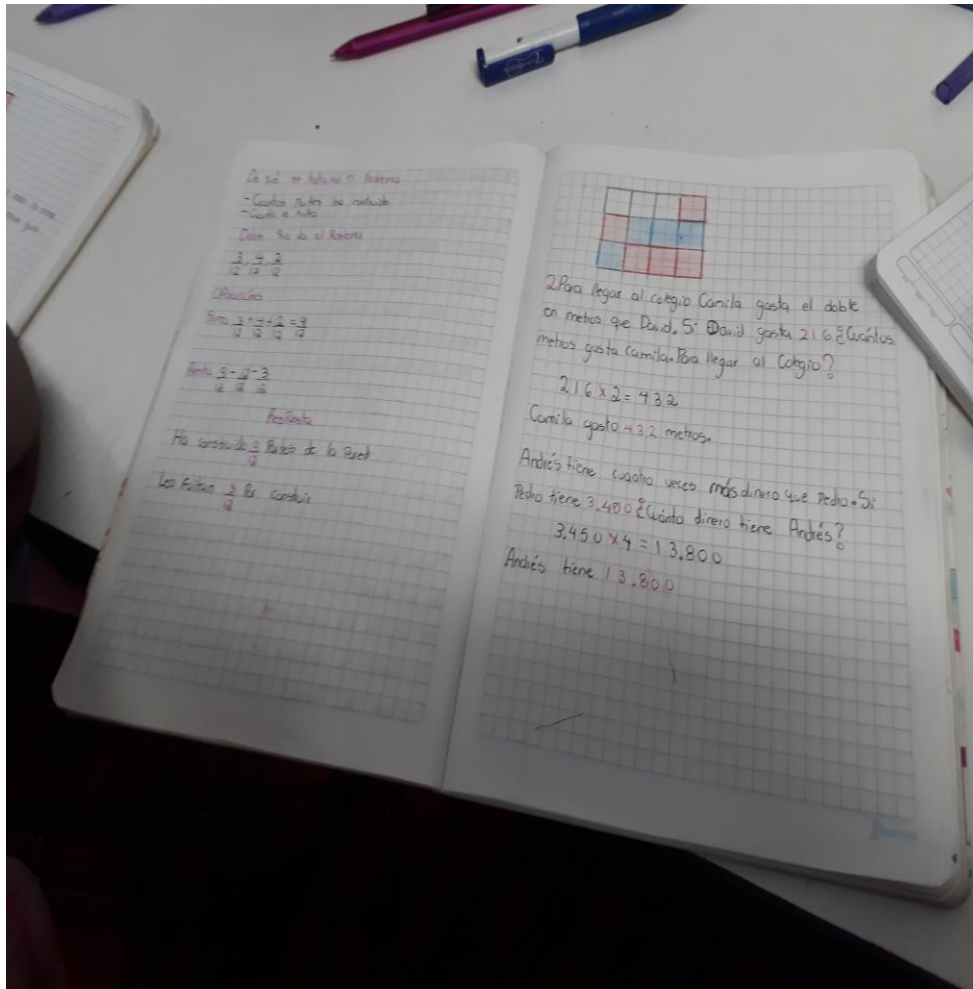 - Cuantas Partes ha construido
- Cuanto le falta
Datos que da el Problema
3/12, 4/12, 2/12
Operación
Suma 3/12 + 4/12 + 2/12 = 9/12
Resta
Respuesta
Ha construido 9/12 Partes de la Pared
Les Faltan 3/12 Por construir
2 Para llegar al colegio Camila gasta el doble
en metros que David. Si David gasta 216 ¿Cuántos
metros gasta camila. Para llegar al Colegio?
216 x 2 = 432
Camila gasto 432 metros.
Andrés tiene cuatro veces más dinero que Pedro. Si
Pedro tiene 3.450 ¿Cuánto dinero tiene Andrés?
3.450 x 4 = 13.800
Andrés tiene 13.800